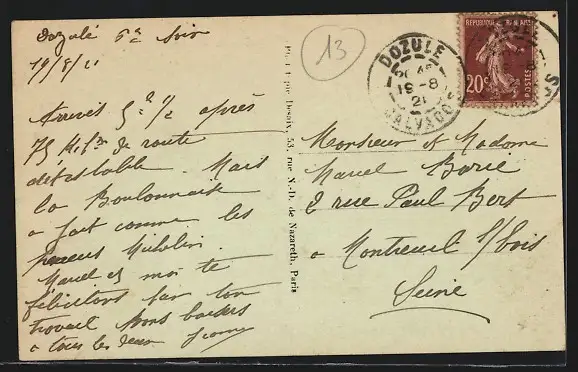 Dozulé 6h Soir
19/8/21
Arrivés 5h 1/2 après
75 Kilm de route
détestable. Mais
la Boulonnaise
a fait comme les
pneus Michelin.
Marcel et moi te
félicitons par ton
travail Bons baisers
a tous les deux
13
DOZULE
19-8
21
CALVADOS
REPUBLIQUE FRANÇAISE
20c
POSTES
Phot. par Desaix, 53, rue N.-D. de Nazareth, Paris
Monsieur et Madame
Marcel
2 rue Paul Bert
a Montreuil s/bois
Seine